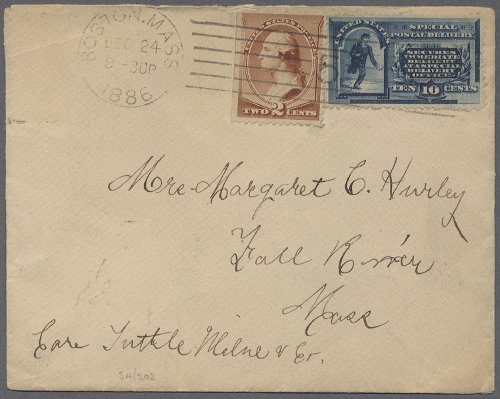 BOSTON. MASS.
DEC 24
8-30P
1886
UNITED STATES POSTAGE
TWO 2 CENTS
UNITED STATES
SPECIAL
POSTAL DELIVERY
SECURES
IMMEDIATE
DELIVERY
AT A SPECIAL
DELIVERY
OFFICE
TEN 10 CENTS
Mrs. Margaret C. Hurley
Fall River
Mass
Care Tuttle Milne & Co.
SA/202